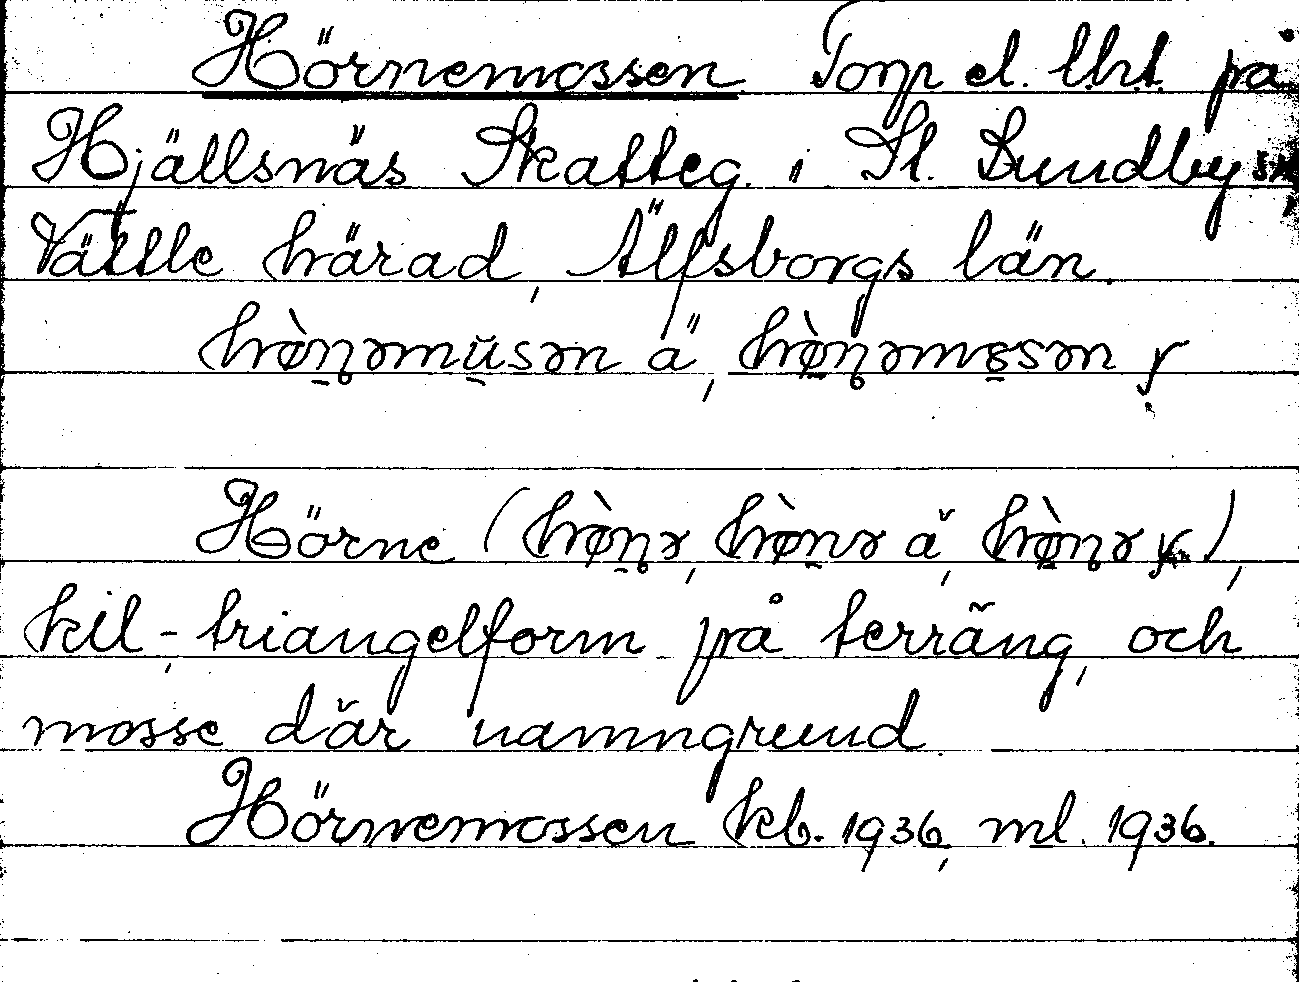 Hörnemossen Torp el. lht på
Hjällsnäs Skatteg. i St. Lundby sn,
Vättle härad, Älfsborgs län.
hø̀ṇəmŭsən ä, hø̀ṇəmosən y
Hörne (hø̀ṇə, hø̀nə ä, hø̀ṇə y),
kil-, triangelform på terräng, och
mosse där namngrund.
Hörnemossen kb. 1936, ml. 1936.